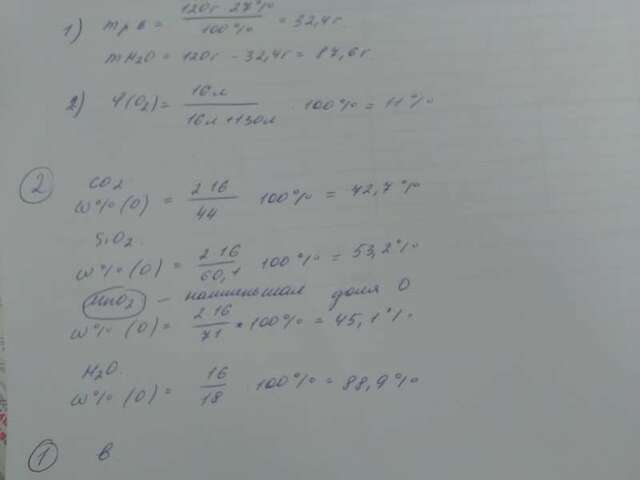 1) m р.в = 120г · 27% / 100% = 32,4г.
mH2O = 120г - 32,4г = 87,6г.
2) φ(O2) = 16л / 16л + 130л · 100% = 11%
2 CO2
w%(O) = 2·16 / 44 · 100% = 72,7%
SiO2.
w%(O) = 2·16 / 60,1 · 100% = 53,2%
MnO2 - наименьшая доля O
w%(O) = 2·16 / 71 · 100% = 45,1%
H2O.
w%(O) = 16 / 18 · 100% = 88,9%
1 в